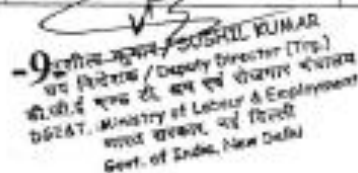 -9-
सुशील कुमार / SUSHIL KUMAR
उप निदेशक / Deputy Director (Trg.)
डी.जी.ई एण्ड टी, श्रम एवं रोजगार मंत्रालय
DGE&T, Ministry of Labour & Employment
भारत सरकार, नई दिल्ली
Govt. of India, New Delhi